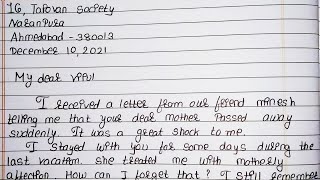 16, Tapovan Society
Naranpura
Ahmedabad - 380013
December 10, 2021
My dear Vipul
I received a letter from our friend minesh
telling me that your dear mother passed away
suddenly. It was a great shock to me.
I stayed with you for some days during the
last vacation. She treated me with motherly
affection. How can I forget that? I still remember